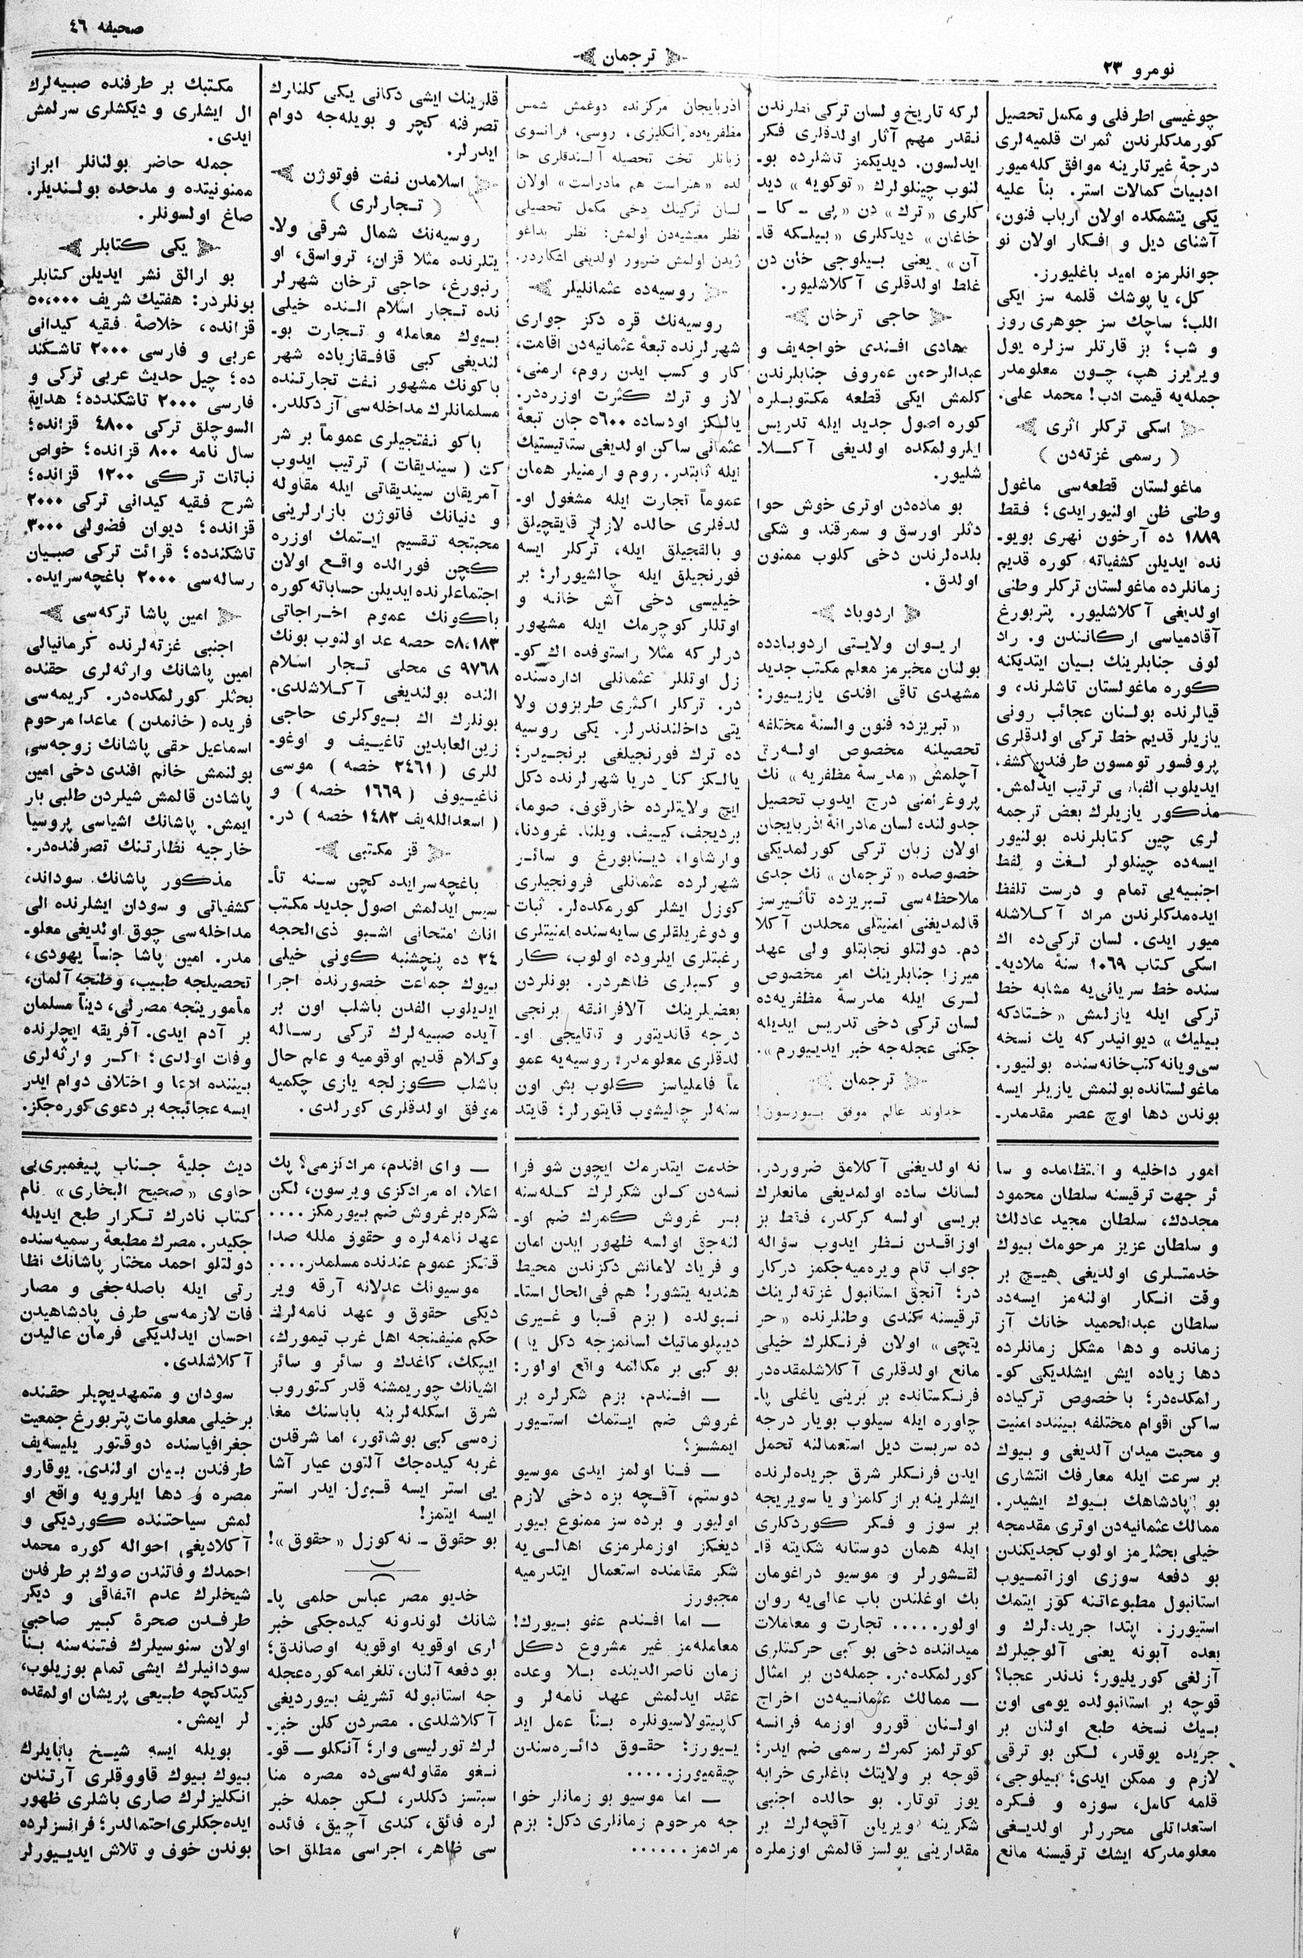 نومرو ٢٣
ترجمان
صحيفه ٤٦
چوغيسى اطرفلى و مكمل تحصيل
كورمدكلرندن ثمرات قلميه‌لرى
درجهٔ غيرتارينه موافق كله‌ميور
ادبيات كمالات استر. بنأ عليه
يكى يتشمكده اولان ارباب فنون،
آشناى ديل و افكار اولان نو
جوانلرمزه اميد باغليورز.
كل، يا پوشك قلمه سز ايكى
اللب؛ ساچك سز جوهرى روز
و شب؛ بز قارتلر سزلره يول
ويريرز هپ، چون معلومدر
جمله‌يه قيمت ادب! محمد على.
اسكى تركلر اثرى
( رسمى غزته‌دن )
ماغولستان قطعه‌سى ماغول
وطنى ظن اولنيورايدى؛ فقط
١٨٨٩ ده آرخون نهرى بويو-
نده ايديلن كشفياته كوره قديم
زمانلرده ماغولستان تركلر وطنى
اولديغى آكلاشليور. پتربورغ
آقادمياسى اركانندن و. راد
لوف جنابلرينك بيان ايتديكنه
كوره ماغولستان تاشلرند، و
قيالرنده بولنان عجائب رونى
يازيلر قديم خط تركى اولدقلرى
پروفسور تومسون طرفندن كشف،
ايديلوب الفباى ترتيب ايدلمش.
مذكور يازيلرك بعض ترجمه
لرى چين كتابلرنده بولنيور
ايسه‌ده چينلولر لغت و لفظ
اجنبيه‌يى تمام و درست تلفظ
ايده‌مدكلرندن مراد آكلاشله
ميور ايدى. لسان تركى‌ده اك
اسكى كتاب ١٠٦٩ سنهٔ ملاديه-
سنده خط سريانى‌يه مشابه خط
تركى ايله يازلمش «ختادكه
بيليك» ديوانيدركه يك نسخه
سى ويانه كتب‌خانه‌سنده بولنيور.
ماغولستانده بولنمش يازيلر ايسه
بوندن دها اوچ عصر مقدمدر-
لركه تاريخ و لسان تركى نظرندن
نقدر مهم آثار اولدقلرى فكر
ايدلسون. ديديكمز تاشلرده بو-
لنوب چينلولرك «توكويه» ديد
كلرى «ترك» دن «پى - كا -
خاغان» ديدكلرى «بيلكه قا-
آن» يعنى بيلوجى خان دن
غلط اولدقلرى آكلاشليور.
حاجى ترخان
هادى افندى خواجه‌يف و
عبدالرحمن عمروف جنابلرندن
كلمش ايكى قطعه مكتوبلره
كوره اصول جديد ايله تدريس
ايلرولمكده اولديغى آكلا-
شليور.
بو ماده‌دن اوترى خوش حوا
دثلر اورسق و سمرقند و شكى
بلده‌لرندن دخى كلوب ممنون
اولدق.
اردوباد
اريوان ولايتى اردوبادده
بولنان مخبرمز معلم مكتب جديد
مشهدى تاقى افندى يازيور:
«تبريزده فنون و السنهٔ مختلفه
تحصيلنه مخصوص اوله‌رق
آچلمش «مدرسهٔ مظفريه» نك
پروغرامنى درج ايدوب تحصيل
جدولنده لسان مادرانهٔ اذربايجان
اولان زبان تركى كورلمديكى
خصوصده «ترجمان» نك جدى
ملاحظه‌سى تبريزده تأثيرسز
قالمديغنى امنيتلى محلدن آكلا
دم. دولتلو نجابتلو ولى عهد
ميرزا جنابلرينك امر مخصوص
لسرى ايله مدرسهٔ مظفريه‌ده
لسان تركى دخى تدريس ايديله
جكنى عجله‌جه خبر ايديورم».
ترجمان
خداوند عالم موفق بيورسون!
اذربايجان مركزنده دوغمش شمس
مظفريه‌ده انكليزى، روسى، فرانسوى
زبانلر تخت تحصيله آلندقلرى حا
لده «هنراست هم مادراست» اولان
لسان تركينك دخى مكمل تحصيلى
نظر معيشيه‌دن اولمش؛ نظر بداغو
ژيدن اولمش ضرور اولديغى اشكاردر.
روسيه‌ده عثمانليلر
روسيه‌نك قره دكز جوارى
شهرلرنده تبعهٔ عثمانيه‌دن اقامت،
كار و كسب ايدن روم، ارمنى،
لاز و ترك كثرت اوزره‌در.
يالكز اودساده ٥٦٠٠ جان تبعهٔ
عثمانى ساكن اولديغى ستاتيستيك
ايله ثابتدر. روم و ارمنيلر همان
عموماً تجارت ايله مشغول او-
لدقلرى حالده لازلر قايقچيلق
و بالقجيلق ايله، تركلر ايسه
فورنجيلق ايله چالشيورلر؛ بر
خيليسى دخى آش خانه و
اوتللر كوچرمك ايله مشهور
درلركه مثلا راستوفده اك كو-
زل اوتللر عثمانلى اداره‌سنده
در. تركلر اكثرى طربزون ولا
يتى داخلندندرلر. يكى روسيه
ده ترك فورنجيلغى برنجيدر؛
يالكز كنار دريا شهرلرنده دكل
ايچ ولايتلرده خارقوف، صوما،
برديجف، كييف. ويلنا. غرودنا،
وارشاوا، دينابورغ و سائر
شهرلرده عثمانلى فرونجيلرى
كوزل ايشلر كورمكده‌لر. ثبات
و دوغريلقلرى سايه‌سنده امنيتلرى
رغبتلرى ايلروده اولوب، كار
و كسبلرى ظاهردر. بونلردن
بعضيلرينك آلافرانيقه برنجى
درجه قانديتور و تاتليجى او-
لدقلرى معلومدر؛ روسيه‌يه عمو
مأ فاعلياسز كلوب بش اون
سنه‌لر چاليشوب قايتورلر؛ قايتد
قلرينك ايشى دكانى يكى كلنارك
تصرفنه كچر و بويله‌جه دوام
ايدرلر.
اسلامدن نفت فوتوژن
( تجارلرى )
روسيه‌نك شمال شرقى ولا-
يتلرنده مثلا قزان، ترواسق، او
رنبورغ، حاجى ترخان شهرلر
نده تجار اسلام النده خيلى
بيوك معامله و تجارت بو-
لنديغى كبى قافقازياده شهر
باكونك مشهور نفت تجارتنده
مسلمانلرك مداخله‌سى آز دكلدر.
باكو نفتجيلرى عموماً بر شر
كت (سينديقات) ترتيب ايدوب
آمريقان سينديقاتى ايله مقاوله
و دنيانك فاتوژن بازارلرينى
محبتجه تقسيم ايتمك اوزره
كچن فورالده واقع اولان
اجتماعلرنده ايديلن حساباته كوره
باكونك عموم اخراجاتى
٥٨،١٨٣ حصه عد اولنوب بونك
٩٧٦٨ ى محلى تجار اسلام
النده بولنديغى آكلاشلدى.
بونلرك اك بيوكلرى حاجى
زين‌العابدين تاغييف و اوغو-
للرى (٢٤٦١ حصه) موسى
ناغييوف (١٦٦٩ حصه) و
(اسعدالله‌يف ١٤٨٢ حصه) در.
قز مكتبى
باغچه‌سرايده كچن سنه تأ-
سيس ايدلمش اصول جديد مكتب
اناث امتحانى اشبو ذى‌الحجه
٢٤ ده پنچشنبه كونى خيلى
بيوك جماعت حضورنده اجرا
ايديلوب الفدن باشلب اون بر
آيده صبيه‌لرك تركى رساله
وكلام قديم اوقوميه و علم حال
باشلب كوزلجه يازى چكميه
موفق اولدقلرى كورلدى.
مكتبك بر طرفنده صبيه‌لرك
ال ايشلرى و ديكشلرى سرلمش
ايدى.
جمله حاضر بولنانلر ابراز
ممنونيتده و مدحده بولنديلر.
صاغ اولسونلر.
يكى كتابلر
بو ارالق نشر ايديلن كتابلر
بونلردر: هفتيك شريف ٥٠،٠٠٠
قزانده، خلاصهٔ فقيه كيدانى
عربى و فارسى ٢٠٠٠ تاشكند
ده؛ چيل حديث عربى تركى و
فارسى ٢٠٠٠ تاشكندده؛ هداية
السوچلق تركى ٤٨٠٠ قزانده؛
سال نامه ٨٠٠ قزانده؛ خواص
نباتات تركى ١٢٠٠ قزانده؛
شرح فقيه كيدانى تركى ٢٠٠٠
قزانده؛ ديوان فضولى ٣٠٠٠
تاشكندده؛ قرائت تركى صبيان
رساله‌سى ٢٠٠٠ باغچه‌سرايده.
امين پاشا تركه‌سى
اجنبى غزته‌لرنده كرمانيالى
امين پاشانك وارثه‌لرى حقنده
بحثلر كورلمكده‌در. كريمه‌سى
فريده (خانمدن) ماعدا مرحوم
اسماعيل حقى پاشانك زوجه‌سى
بولنمش خانم افندى دخى امين
پاشادن قالمش شيلردن طلبى بار
ايمش. پاشانك اشياسى پروسيا
خارجيه نظارتنك تصرفنده‌در.
مذكور پاشانك سوداند،
كشفياتى و سودان ايشلرنده الى
مداخله‌سى چوق اولديغى معلو-
مدر. امين پاشا جنساً يهودى،
تحصيلجه طبيب، وطنجه آلمان،
مأموريتجه مصرلى، ديناً مسلمان
بر آدم ايدى. آفريقه ايچلرنده
وفات اولدى؛ اكر وارثه‌لرى
بيننده ادعا و اختلاف دوام ايدر
ايسه عجائبجه بر دعوى كوره‌جكز.
امور داخليه و انتظامده و سا
ئر جهت ترقيسنه سلطان محمود
مجددك، سلطان مجيد عادلك
و سلطان عزيز مرحومك بيوك
خدمتلرى اولديغى هيچ بر
وقت انكار اولنه‌مز ايسه‌ده
سلطان عبدالحميد خانك آز
زمانده و دها مشكل زمانلرده
دها زياده ايش ايشلديكى كو-
رلمكده‌در؛ با خصوص تركياده
ساكن اقوام مختلفه بيننده امنيت
و محبت ميدان آلديغى و بيوك
بر سرعت ايله معارفك انتشارى
بو پادشاهك بيوك ايشيدر.
ممالك عثمانيه‌دن اوترى مقدمجه
خيلى بحثلرمز اولوب كجديكندن
بو دفعه سوزى اوزاتميوب
استانبول مطبوعاتنه كوز ايتمك
استيورز. ابتدا جريده‌لرك و
بعده آبونه يعنى آلوجيلرك
آزلغى كوريليور؛ ندندر عجبا؟
قوچه بر استانبولده يومى اون
بيك نسخه طبع اولنان بر
جريده يوقدر، لكن بو ترقى
لازم و ممكن ايدى؛ بيلوجى،
قلمه كامل، سوزه و فكره
استعداتلى محررلر اولديغى
معلومدركه ايشك ترقيسنه مانع
نه اولديغنى آكلامق ضروردر.
لسانك ساده اولمديغى مانعلرك
بريسى اولسه كركدر، فقط بز
اوزاقدن نظر ايدوب سؤاله
جواب تام ويره‌ميه‌جكمز دركار
در؛ آنجق استانبول غزته‌لرينك
ترقيسنه كندى وطنلرنده «حر
يتچى» اولان فرنكلرك خيلى
مانع اولدقلرى آكلاشلمقده‌در
فرنكستانده بر برينى ياغلى پا-
چاوره ايله سيلوب بويار درجه
ده سربست ديل استعمالنه تحمل
ايدن فرنكلر شرق جريده‌لرنده
ايشلرينه براز كلمز و يا سويريجه
بر سوز و فكر كوردكلرى
ايله همان دوستانه شكايته قا-
لقشورلر و موسيو دراغومان
بك اوغلندن باب عالى‌يه روان
اولور..... تجارت و معاملات
ميداننده دخى بو كبى حركتلرى
كورلمكده‌در. جمله‌دن بر امثال
— ممالك عثمانيه‌دن اخراج
اولنان قورو اوزمه فرانسه
كوترلمز كمرك رسمى ضم ايدر؛
قوجه بر ولايتك باغلرى خرابه
يوز توتار. بو حالده اجنبى
شكرينه ويريان آقچه‌لرك بر
مقدارينى يولسز قالمش اوزملره
خدمت ايتدرمك ايچون شو فرا
نسه‌دن كلن شكرلرك كله‌سنه
بر غروش كمرك ضم او-
لنه‌جق اولسه ظهور ايدن امان
و فرياد لامانش دكزندن محيط
هنديه يتشور! هم فى‌الحال استا-
نبولده (بزم قبا و غيرى
ديپلوماتيك لسانمزجه دكل يا)
بو كبى بر مكالمه واقع اولور:
— افندم، بزم شكرلره بر
غروش ضم ايتمك استيور
ايمشسز؟
— فنا اولمز ايدى موسيو
دوستم، آقچه بزه دخى لازم
اوليور و برده سز ممنوع بيور
ديغكز اوزملرمزى اهالى‌يه
شكر مقامنده استعمال ايتدرميه
مجبورز
— اما افندم عفو بيورك!
معامله‌مز غير مشروع دكل
زمان ناصرالدينده بلا وعده
عقد ايدلمش عهد نامه‌لر و
كاپيتولاسيونلره بنأ عمل ايد
يورز؛ حقوق دائره‌سندن
چيقميورز.....
— اما موسيو بو زمانلر خوا
جه مرحوم زمانلرى دكل؛ بزم
مرادمز......
— واى افندم، مرادكزمى؟ پك
اعلا، اه مرادكزى ويرسون، لكن
شكره بر غروش ضم بيورمكز....
عهد نامه‌لره و حقوق ملله صدا
قتكز عموم عندنده مسلمدر....
موسيونك عدلانه آرقه وير
ديكى حقوق و عهد نامه‌لرك
حكم منيفنجه اهل غرب تيمورك،
ايپكك، كاغدك و سائر و سائر
اشيانك چوريمشنه قدر كتوروب
شرق اسكله‌لرينه باباسنك مغا
زه‌سى كبى بوشاتور، اما شرقدن
غربه كيده‌جك آلتون عيار آشا
يى استر ايسه قبول ايدر استر
ايسه ايتمز!
بو حقوق - نه كوزل «حقوق»!
خديو مصر عباس حلمى پا-
شانك لوندونه كيده‌جكى خبر
لرى اوقويه اوقويه اوصاندق؛
بو دفعه آلنان، تلغرامه كوره عجله
جه استانبوله تشريف بيورديغى
آكلاشلدى. مصردن كلن خبر-
لرك تورليسى وار؛ آنكلو - قو-
نغو مقاوله‌سى‌ده مصره منا
سبتسز دكلدر، لكن جمله خبر
لره فائق، كندى آجيق، فائده
سى ظاهر، اجراسى مطلق احا
ديث جليهٔ جناب پيغمبرى‌يى
حاوى «صحيح البخارى» نام
كتاب نادرك تكرار طبع ايديله
جكيدر. مصرك مطبعهٔ رسميه‌سنده
دولتلو احمد مختار پاشانك نظا
رتى ايله باصله‌جغى و مصار
فات لازمه‌سى طرف پادشاهيدن
احسان ايدلديكى فرمان عاليدن
آكلاشلدى.
سودان و متمهديچيلر حقنده
برخيلى معلومات پتربورغ جمعيت
جغرافياسنده دوقتور يليسه‌يف
طرفندن بيان اولندى. يوقارو
مصره و دها ايلرويه واقع او
لمش سياحتنده كورديكى و
آكلاديغى احواله كوره محمد
احمدك وفاتندن صوك بر طرفدن
شيخلرك عدم اتفاقى و ديكر
طرفدن صحرهٔ كبير صاحبى
اولان سنوسيلرك فتنه‌سنه بنأ
سودانيلرك ايشى تمام بوزيلوب،
كيتدكچه طبيعى پريشان اولمقده
لر ايمش.
بويله ايسه شيخ بابايلرك
بيوك بيوك قاووقلرى آرتندن
انكليزلرك صارى باشلرى ظهور
ايده‌جكلرى احتمالدر؛ فرانسزلرده
بوندن خوف و تلاش ايديورلر